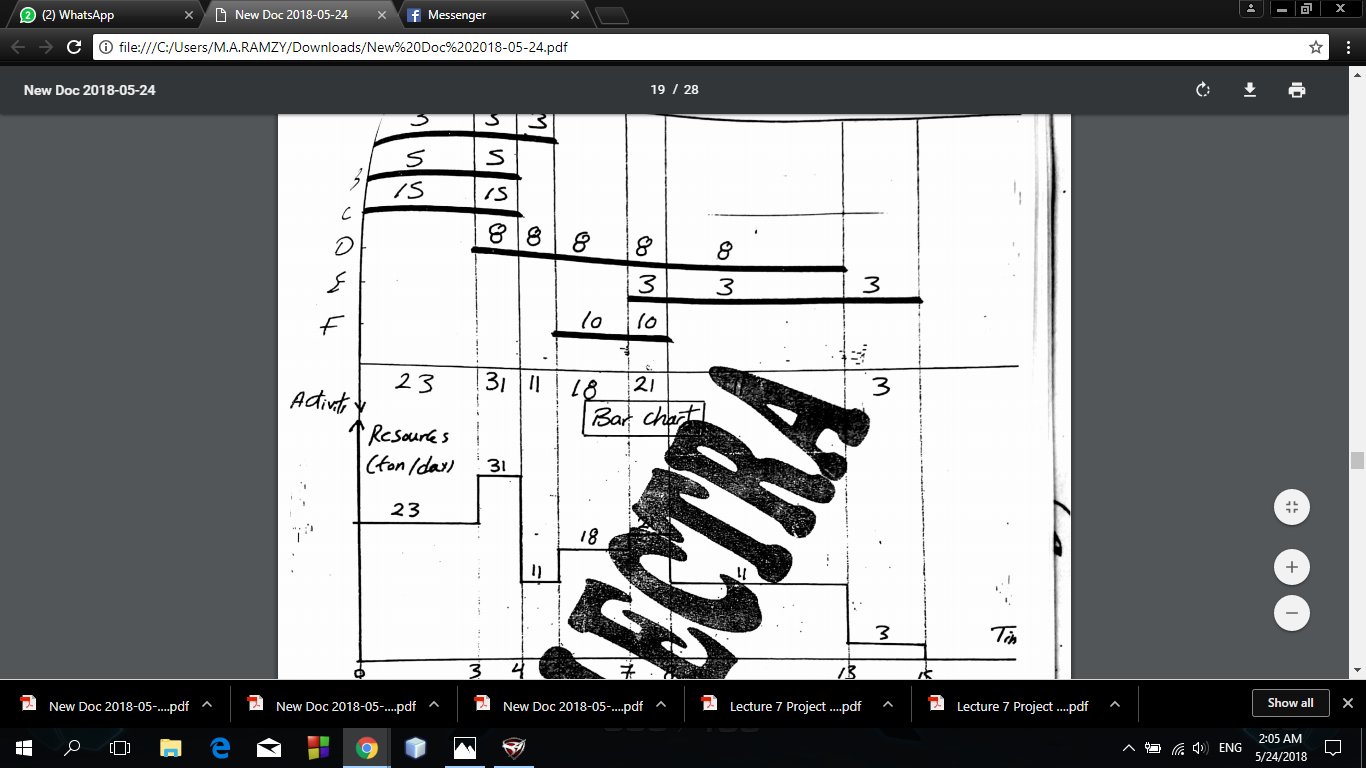 (2) WhatsApp
New Doc 2018-05-24
Messenger
file:///C:/Users/M.A.RAMZY/Downloads/New%20Doc%202018-05-24.pdf
New Doc 2018-05-24
19 / 28
3 3 3
5 5
15 15
C
D 8 8 8 8 8
E 3 3 3
F 10 10
23 31 11 18 21 3
Bar chart
Resources
(ton/day)
31
23
18
11 11
3
LECTRA
0 3 4 7 13 15
New Doc 2018-05-....pdf
New Doc 2018-05-....pdf
New Doc 2018-05-....pdf
Lecture 7 Project ....pdf
Lecture 7 Project ....pdf
Show all
ENG
2:05 AM
5/24/2018